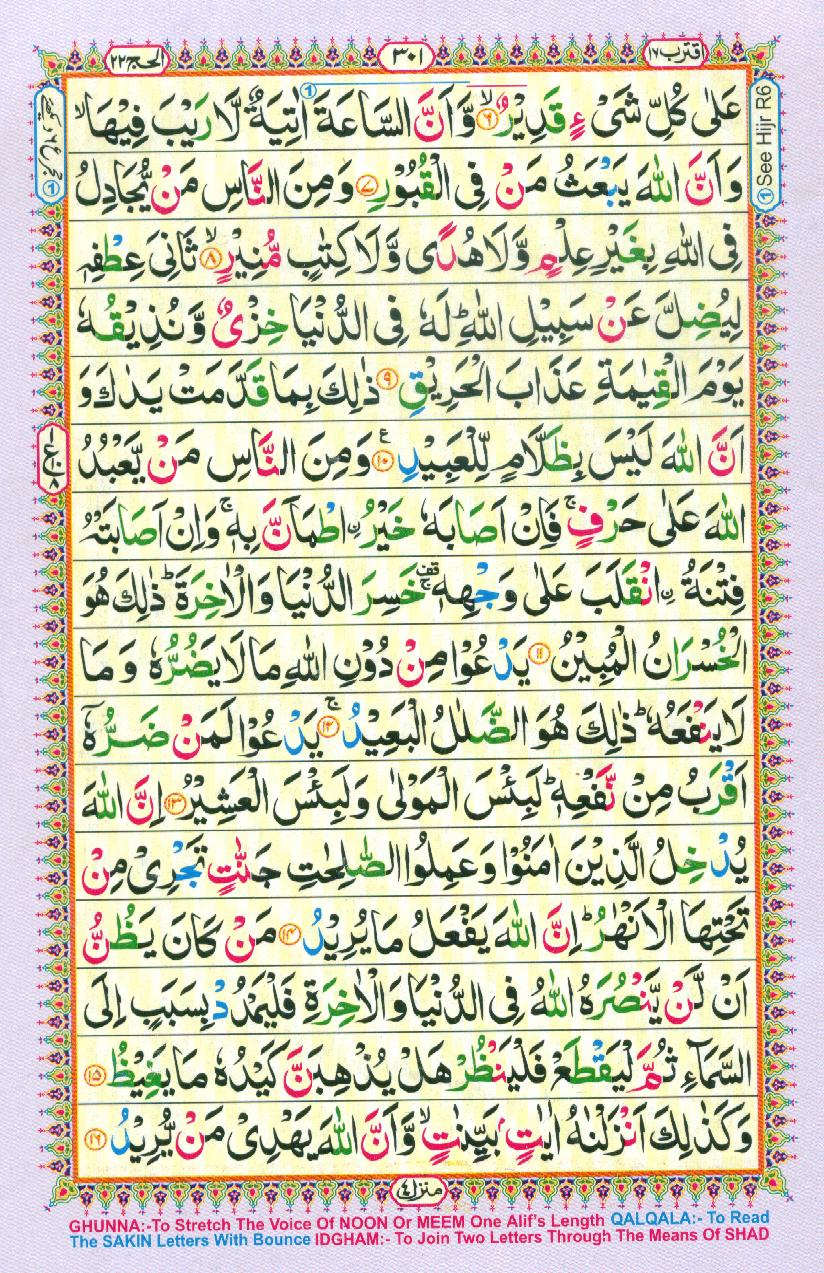 اقترب ١٧
٣٠١
الحج ٢٢
عَلٰى كُلِّ شَىْءٍ قَدِيْرٌ ۙ﴿۶﴾ وَّاَنَّ السَّاعَةَ اٰتِيَةٌ لَّا رَيْبَ فِيْهَا ۙ
وَاَنَّ اللّٰهَ يَبْعَثُ مَنْ فِى الْقُبُوْرِ ﴿۷﴾ وَمِنَ النَّاسِ مَنْ يُّجَادِلُ
فِى اللّٰهِ بِغَيْرِ عِلْمٍ وَّلَا هُدًى وَّلَا كِتٰبٍ مُّنِيْرٍ ۙ﴿۸﴾ ثَانِىَ عِطْفِهٖ
لِيُضِلَّ عَنْ سَبِيْلِ اللّٰهِ ؕ لَهٗ فِى الدُّنْيَا خِزْىٌ وَّنُذِيْقُهٗ
يَوْمَ الْقِيٰمَةِ عَذَابَ الْحَرِيْقِ ﴿۹﴾ ذٰلِكَ بِمَا قَدَّمَتْ يَدٰكَ وَ
اَنَّ اللّٰهَ لَيْسَ بِظَلَّامٍ لِّلْعَبِيْدِ ﴿۱۰﴾ ع وَمِنَ النَّاسِ مَنْ يَّعْبُدُ
اللّٰهَ عَلٰى حَرْفٍ ۚ فَاِنْ اَصَابَهٗ خَيْرُ ۨاطْمَاَنَّ بِهٖ ۚ وَاِنْ اَصَابَتْهُ
فِتْنَةُ ۨانْقَلَبَ عَلٰى وَجْهِهٖ ۚقف خَسِرَ الدُّنْيَا وَالْاٰخِرَةَ ؕ ذٰلِكَ هُوَ
الْخُسْرَانُ الْمُبِيْنُ ﴿۱۱﴾ يَدْعُوْا مِنْ دُوْنِ اللّٰهِ مَا لَا يَضُرُّهٗ وَمَا
لَا يَنْفَعُهٗ ؕ ذٰلِكَ هُوَ الضَّلٰلُ الْبَعِيْدُ ۚ﴿۱۲﴾ يَدْعُوْا لَمَنْ ضَرُّهٗۤ
اَقْرَبُ مِنْ نَّفْعِهٖ ؕ لَبِئْسَ الْمَوْلٰى وَلَبِئْسَ الْعَشِيْرُ ﴿۱۳﴾ اِنَّ اللّٰهَ
يُدْخِلُ الَّذِيْنَ اٰمَنُوْا وَعَمِلُوا الصّٰلِحٰتِ جَنّٰتٍ تَجْرِىْ مِنْ
تَحْتِهَا الْاَنْهٰرُ ؕ اِنَّ اللّٰهَ يَفْعَلُ مَا يُرِيْدُ ﴿۱۴﴾ مَنْ كَانَ يَظُنُّ
اَنْ لَّنْ يَّنْصُرَهُ اللّٰهُ فِى الدُّنْيَا وَالْاٰخِرَةِ فَلْيَمْدُدْ بِسَبَبٍ اِلَى
السَّمَآءِ ثُمَّ لْيَقْطَعْ فَلْيَنْظُرْ هَلْ يُذْهِبَنَّ كَيْدُهٗ مَا يَغِيْظُ ﴿۱۵﴾
وَكَذٰلِكَ اَنْزَلْنٰهُ اٰيٰتٍۢ بَيِّنٰتٍ ۙ وَّاَنَّ اللّٰهَ يَهْدِىْ مَنْ يُّرِيْدُ ﴿۱۶﴾
① See Hijr R6
منزل ٤
GHUNNA:-To Stretch The Voice Of NOON Or MEEM One Alif's Length QALQALA:- To Read
The SAKIN Letters With Bounce IDGHAM:- To Join Two Letters Through The Means Of SHAD